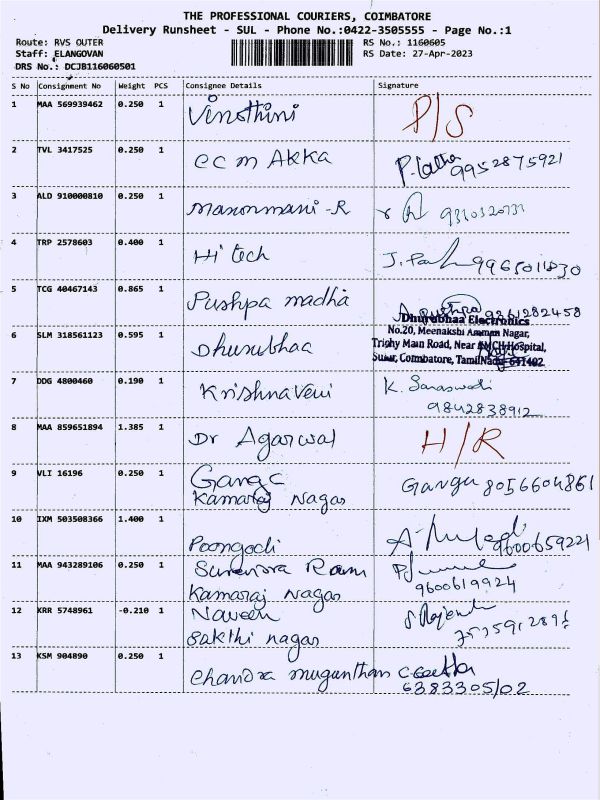 THE PROFESSIONAL COURIERS, COIMBATORE
Delivery Runsheet - SUL - Phone No.:0422-3505555 - Page No.:1
Route: RVS OUTER RS No.: 1160605
Staff: ELANGOVAN RS Date: 27-Apr-2023
DRS No.: DCJB116060501
S No Consignment No Weight PCS Consignee Details Signature
1 MAA 569939462 0.250 1 Vinothini P/S
2 TVL 3417525 0.250 1 ecm AKKA P. Latha 9952875921
3 ALD 910000810 0.250 1 Manonmani-R
4 TRP 2578603 0.400 1 Hi tech
5 TCG 40467143 0.865 1 Pushpa madha
Dhurubhaa Electronics
6 SLM 318561123 0.595 1 Dhurubhaa No.20, Meenakshi Amman Nagar,
Trichy Main Road, Near RMCH Hospital,
Sulur, Coimbatore, TamilNadu 641402
7 DDG 4800460 0.190 1 Krishnaveni K. Saraswadi
9842838912
8 MAA 859651894 1.385 1 Dr Agarwal H/R
9 VLI 16196 0.250 1 Ganga Ganga 8056604861
Kamaraj Nagar
10 IXM 503508366 1.400 1 Poongodi 9600659221
11 MAA 943289106 0.250 1 Surendra Ram
Kamaraj Nagar 9600619924
12 KRR 5748961 -0.210 1 Naveen S. Rajend
Sakthi nagar
13 KSM 904890 0.250 1 Chandra muganthan Geetha